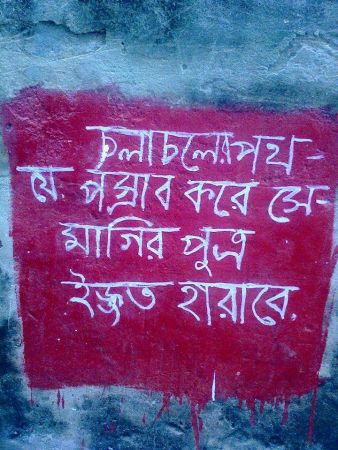 চলাচলের পথ -
যে পস্রাব করে সে -
মাগির পুত্র
ইজ্জত হারাবে.